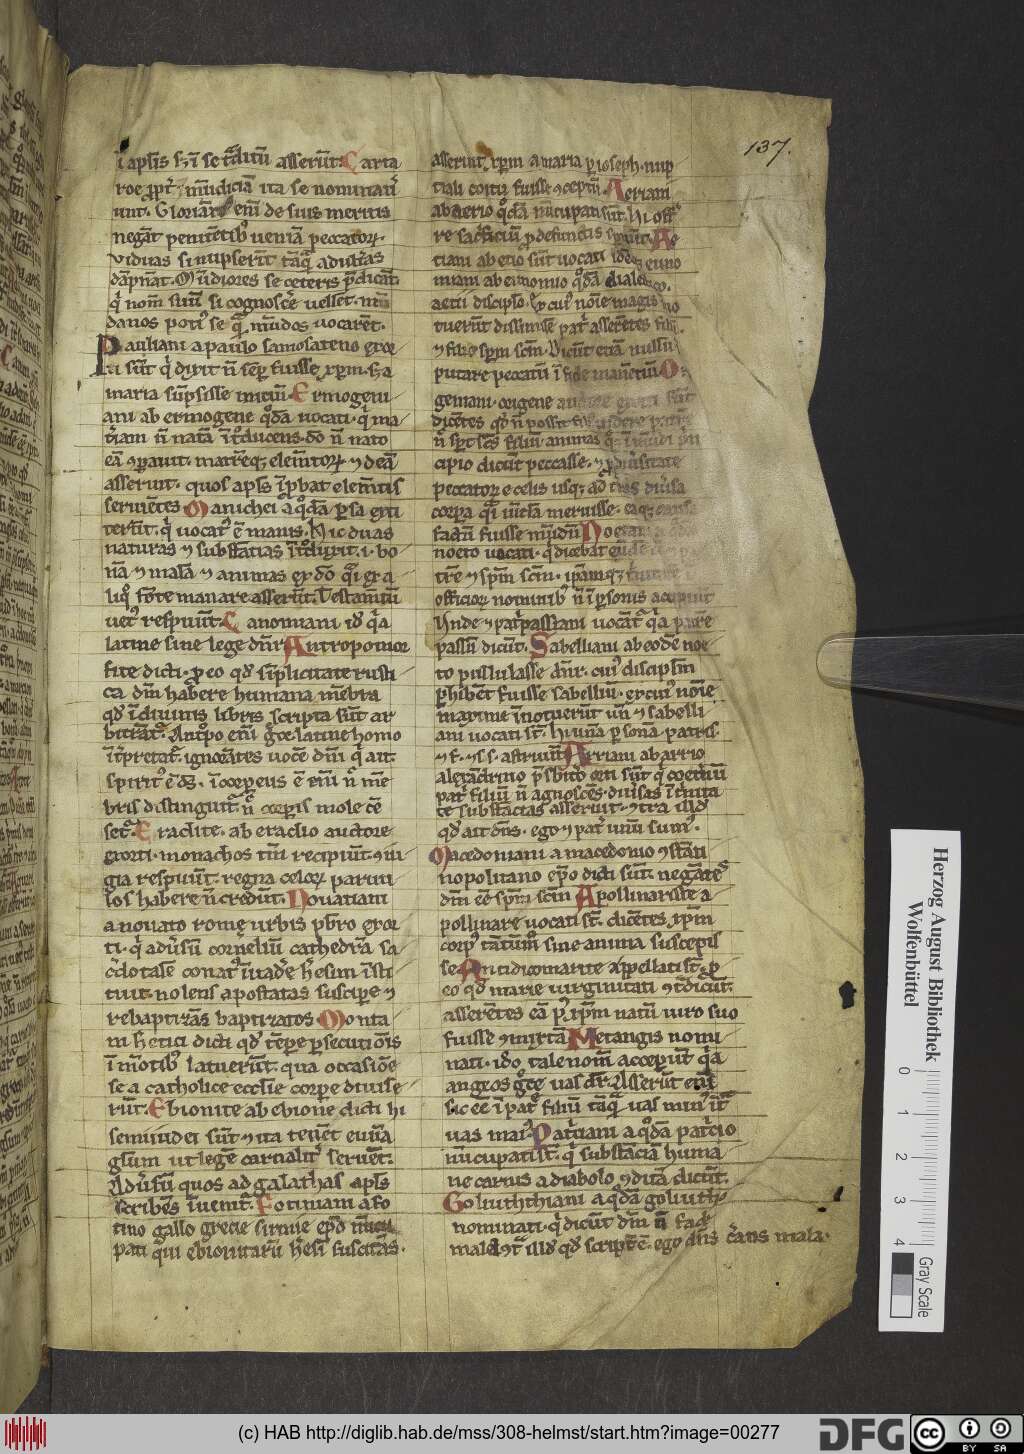 ī apsīs s; ī se t̄ditū asserūt. Carta
roe ꝓpt̄ mūdiciā ita se nominaue
runt. Gloriāt enī de suis meritis
negāt penitētibꝰ ueniā peccatoꝝ.
viduas si nupserīt tāq̄ adulťas
dāpnāt. Mūdiores se ceteris p̄dicāt.
q̄ nom̄ suū si cognoscẻ uellēt. mū
danos potiꝰ se q̄ mūdos uocarēt.
Pauliani a paulo samosateno exor
ti sūt q̄ dixit n̄ sēp̄ fuisse xp̄m. s; a
maria sūpsisse initiū. Ermogeni
ani ab ermogene qͦdā uocati. q̄ ma
t̄iam n̄ natā īt̄ducens. dō n̄ nato
eā ꝯparauit. matrēq; elemētoꝝ ⁊ deā
asseruit. quos apls īprobat elem̄tis
seruiētes. Manichei a qͦdā persa exti
terūt. q̄ uocatꝰ ē manis. Hic duas
naturas ⁊ substātias īt̄duxit. i. bo
nā ⁊ malā ⁊ animas ex dō q̄i ex a
liqͦ fōte manare asserūt. Testamtū
uetꝰ respuūt. Canoniani iō q̄a
latine sine lege dn̄r. Antropomor
fite dicti. ꝓ eo qd̄ sīplicitate rusti
ca dm̄ habere humana mēbra
qd̄ ī diuinis libris scripta sūt ar
bitrāt̄. Antropo enī gͨce latine homo
īt̄pretat̄. ignorātes uocē dn̄i q̄ ait
spiritꝰ ē ds̄. īcorpeus ē enī n̄ mē
bris distinguit̄. n̄ corporis mole cē
set̄. Eraclite. ab eraclio auctore
exorti. monachos tm̄ recipiūt ꝯiu
gia respuūt. regna celoꝝ paruu
los habere n̄ credūt. Nouatiani
a nouato rome urbis p̄bro exor
ti. q̄ adūsū corneliū cathedrā sa
cͦdotalē conatꝰ īuadẻ h̄esim īsti
tuit. nolens apostatas suscipẻ ⁊
rebaptizās baptizatos. Monta
ni h̄etici dicti qd̄ tēpe persecutiōis
ī mōtibꝰ latuerūt. qua occasiōe
se a catholice ecclīe corpe diuise
rūt. Ebionite ab ebione dicti hi
semiiudei sūt ⁊ ita tenēt euua
gl̄ium ut legē carnalit̄ seruēt.
Adūsū quos ad galathas apls
scribēs īuenit̄. Fotiniani a fo
tino gallo grecie sirmie ep̄o nūcu
pati q̄i ebionitarū h̄esī suscitās.
asseruit xp̄m a maria p ioseph nup
tiali coitu fuisse ꝯceptū. Aeriani
ab aerio qͦdā nūcupati sūt. Hi offer
re sacͥficiū ꝓ defunctis spnūt. Ae
tiani ab etio sūt uocati idēq; euno
miani ab eunomio qͦdā dialetico.
aetii discipl̄o. ex cuiꝰ noīe magis ino
tuerūt dissimile pat̄ asserētes filiū.
⁊ filio sp̄m scm̄. Dicūt etiā nullū
putare peccatū ī fide manētiū. Ori
geniani. origene auctore exorti sūt
dicētes qd̄ n̄ possit filiꝰ uidere patrē
n̄ sp̄s scs̄ filiū. animas q̄; ī mūdi pͥn
cipio dicūt peccasse. ⁊ ꝓ diūsitate
peccatoꝝ e celis usq; ad tͬas diūsa
corpora q̄i uīcla meruisse. eaq; causa
factū fuisse mūdū. Noetiani a qͦdā
noeto uocati. q̄ dicebat
tͬe ⁊ sp̄m scm̄. ipsamq; trinitatē ī
officioꝝ nominibꝰ n̄ ī psonis accipiūt
Unde ⁊ patͥpassiani uocāt̄ q̄a patrē
passū dicūt. Sabelliani ab eodē noe
to pullulasse dn̄r. cuiꝰ discipl̄m
phibēt fuisse sabelliū. ex cuiꝰ noīe
maxime īnotuerūt un̄ ⁊ sabelli
ani uocati st̄. hi unā psonā patris.
⁊ f. ⁊ s s. astruūt. Arriani ab arrio
alexādrino p̄sbitͦo orti sūt q̄ coet̄nū
patͥ filiū n̄ agnoscēs. diūsas ī tͥnita
te substātias asseruit. ꝯtra illd̄
qd̄ ait dn̄s. ego ⁊ patͬ unū sumꝰ.
Macedoniani a macedonio ꝯstāti
nopolitano ep̄o dicti sūt. negātes
dm̄ eē sp̄m scm̄. Apollinariste a
pollinare uocati st̄. dicētes xp̄m
corpꝰ tātum sine anima suscepis
se. Antidicomarite appellati st̄. ꝓ
eo qd̄ marie uirginitati ꝯtͣdicūt.
asserētes eā pꝰ xp̄m natū uiro suo
fuisse ꝯmixtā. Metangis nomi
nati. ido tale nom̄ acceperūt q̄a
angeos gͨce uas dr̄. Asserūt enī
sic eē ī patͬ filiū tāq̄ uas minꝰ īt̄
uas maiꝰ. Patͥiani a qͦdā patͥcio
nūcupati st̄. q̄ substāciā huma
ne carnis a diabolo ꝯditā dicūt.
Goliuthiani a qͦdā goliutho
nominati. q̄ dicūt dm̄ n̄ facẻ
mala. ꝯtͣ illd̄ qd̄ scriptū ē. ego dn̄s cͤans mala.
137.
Herzog August Bibliothek
Wolfenbüttel
0 1 2 3 4
Gray Scale
(c) HAB http://diglib.hab.de/mss/308-helmst/start.htm?image=00277
DFG
cc
BY SA